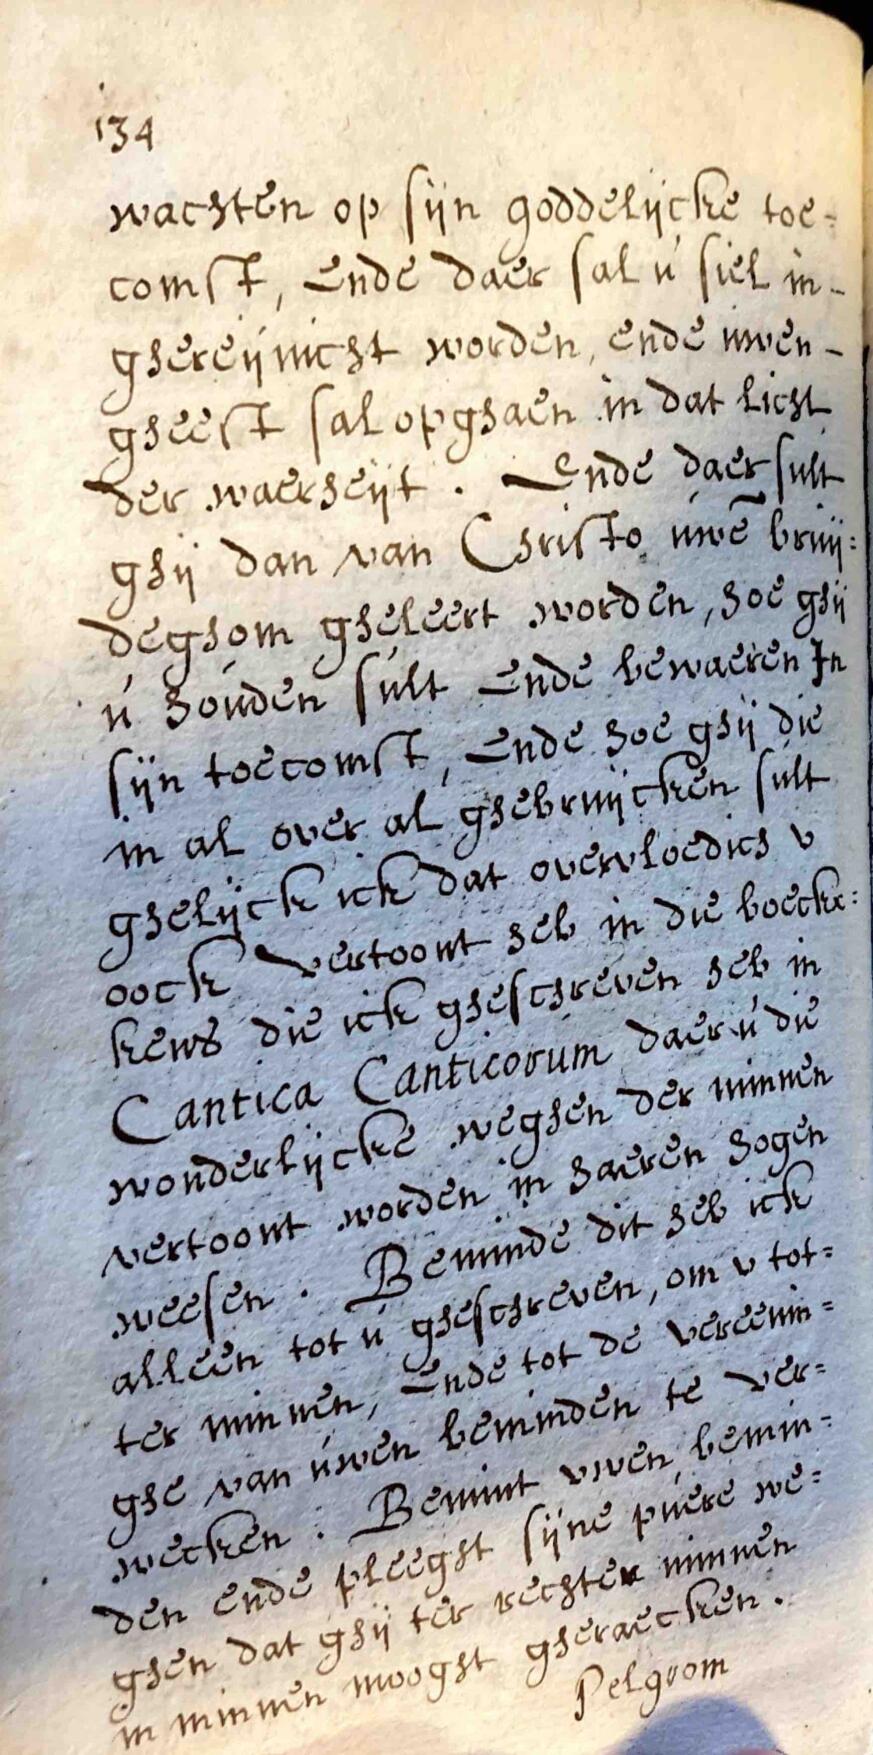 134
wachten op sijn goddelijcke toe-
comst, Ende daer sal ú siel in-
ghereijnicht worden, ende uwen-
gheest sal opghaen in dat licht
der waerheijt. Ende daer sult
ghij dan van Christo uwē bruij:
deghom gheleert worden, hoe ghij
ú houden sult Ende bewaeren In
sijn toecomst, Ende hoe ghij die
in al over al ghebruijcken sult
ghelijck ick dat overvloedich v
oock vertoont heb in die boecke:
kens die ick gheschreven heb in
Cantica Canticorum daer ú die
wonderlijcke weghen der minnen
vertoont worden in haeren hogen
weesen. Beminde dit heb ick
alleen tot ú gheschreven, om v tot=
ter minnen, Ende tot de vereenin=
ghe van úwen beminden te ver=
wecken: Bemint vwen bemin=
den ende pleeght sijne puere we=
ghen dat ghij ter rechter minnen
in minnen mooght gheraecken.
Pelgrom